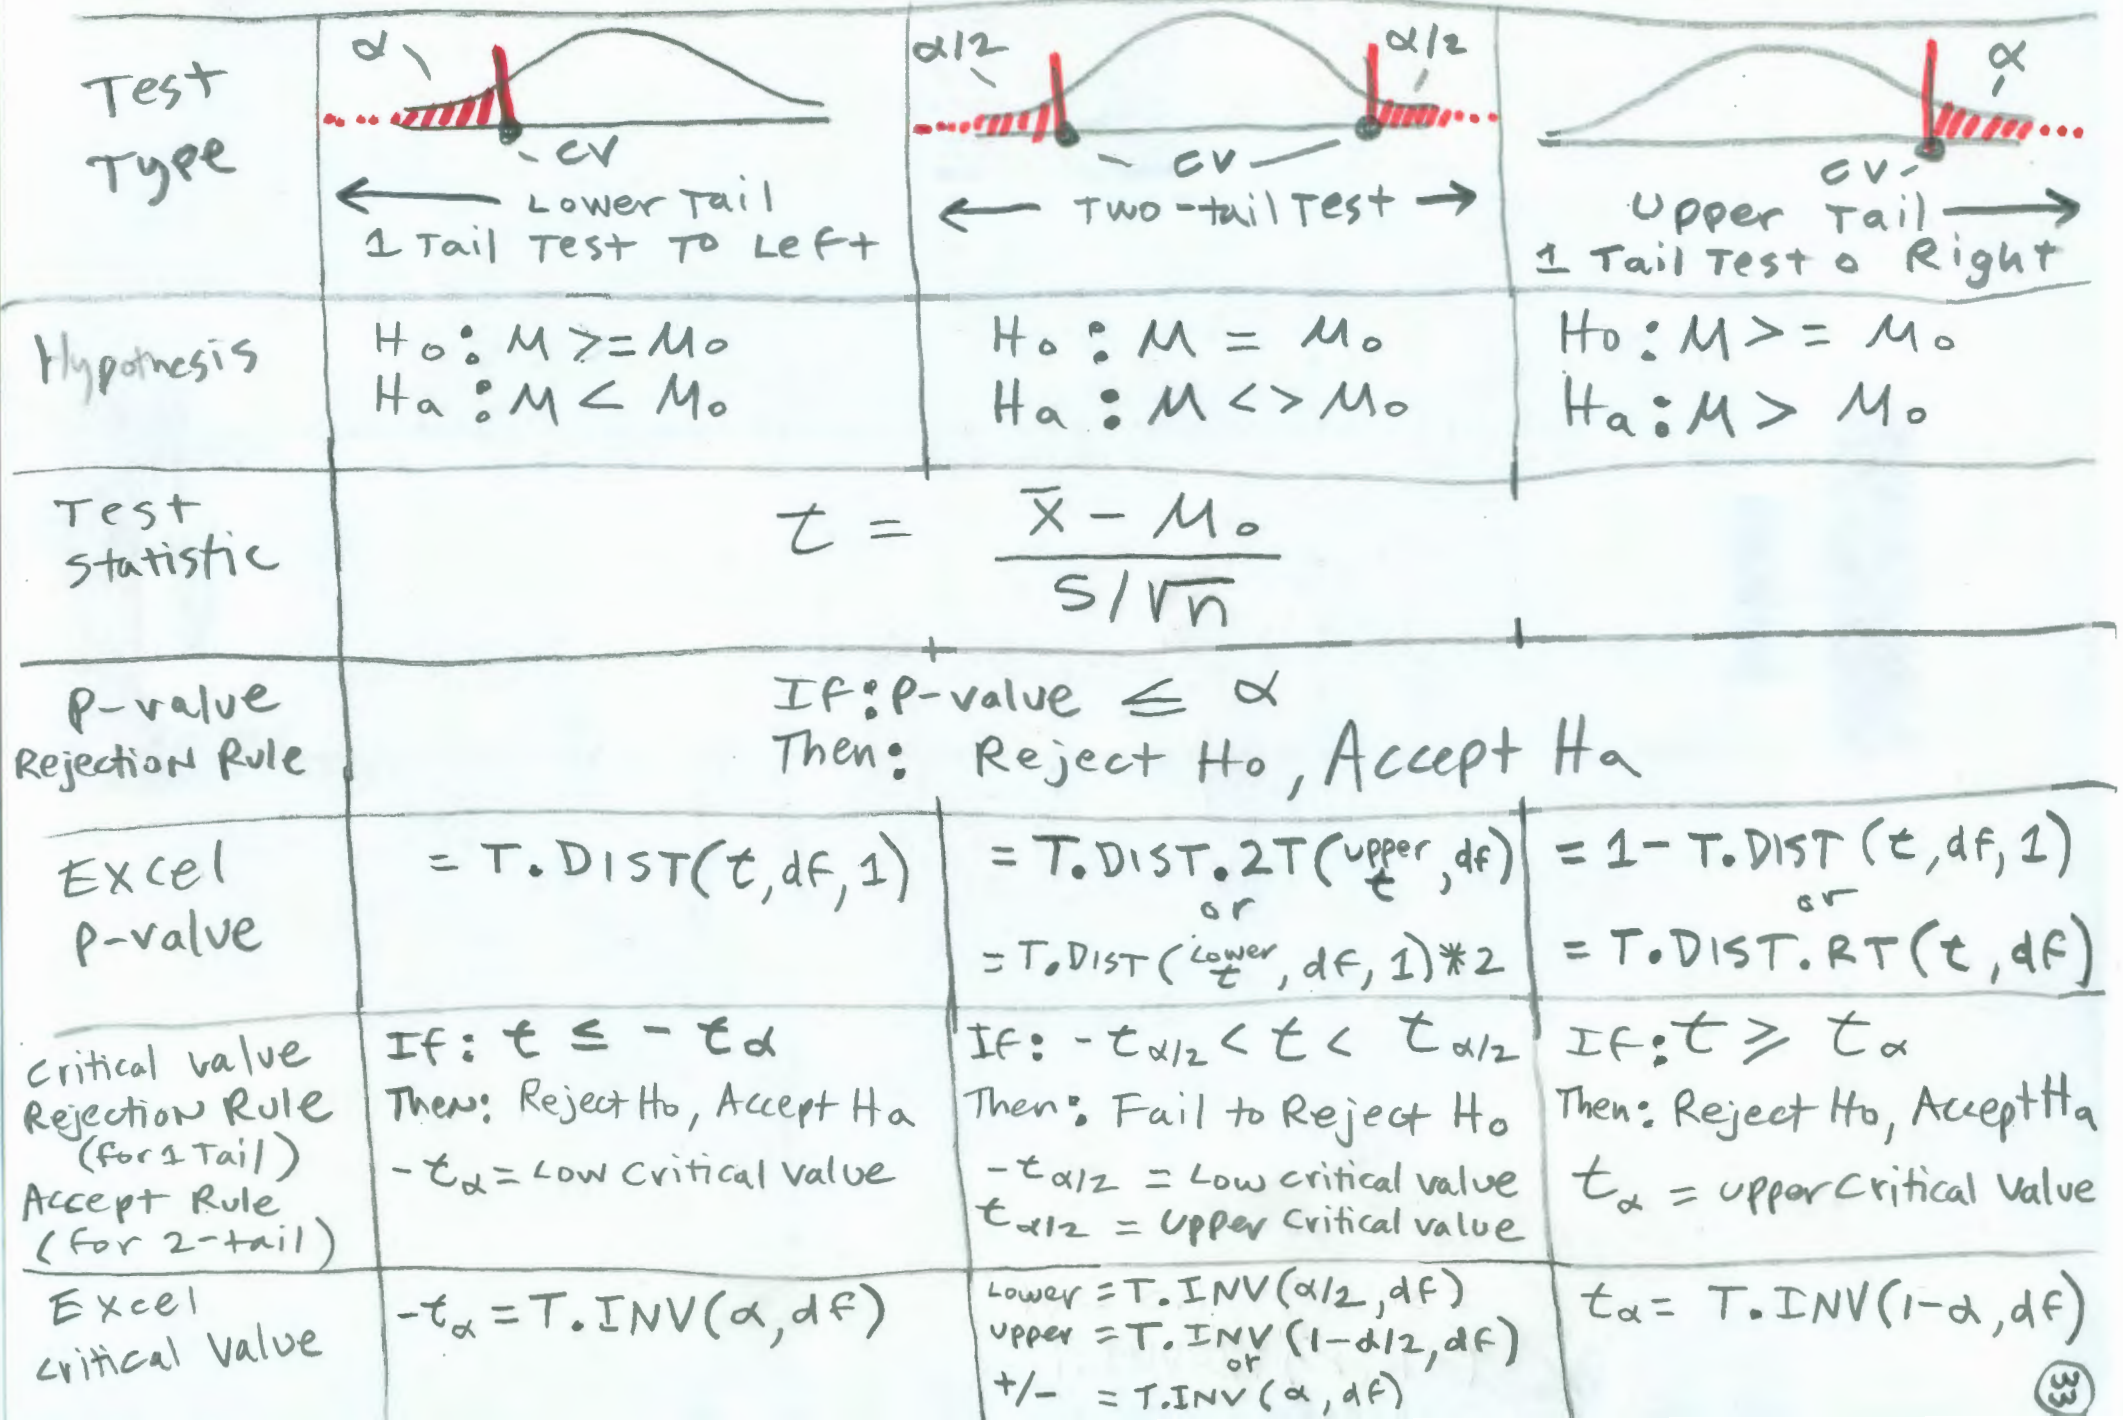 Test
Type
α
CV
Lower Tail
1 Tail Test To Left
α/2
α/2
CV
Two-tail Test
α
CV
Upper Tail
1 Tail Test o Right
Hypothesis
Ho: M >= Mo
Ha: M < Mo
Ho: M = Mo
Ha: M <> Mo
Ho: M >= Mo
Ha: M > Mo
Test
Statistic
t = x̄ - Mo
S/√n
P-value
Rejection Rule
If: P-value ≤ α
Then: Reject Ho, Accept Ha
Excel
P-value
= T.DIST(t, df, 1)
= T.DIST.2T(upper t, df)
or
= T.DIST(Lower t, df, 1)*2
= 1- T.DIST(t, df, 1)
or
= T.DIST.RT(t, df)
Critical value
Rejection Rule
(for 1 Tail)
Accept Rule
(for 2-tail)
If: t ≤ -tα
Then: Reject Ho, Accept Ha
-tα = Low Critical Value
If: -tα/2 < t < tα/2
Then: Fail to Reject Ho
-tα/2 = Low critical value
tα/2 = Upper Critical value
If: t ≥ tα
Then: Reject Ho, Accept Ha
tα = upper Critical Value
Excel
Critical Value
-tα = T.INV(α, df)
Lower = T.INV(α/2, df)
upper = T.INV(1-α/2, df)
or
+/- = T.INV(α, df)
tα = T.INV(1-α, df)
33